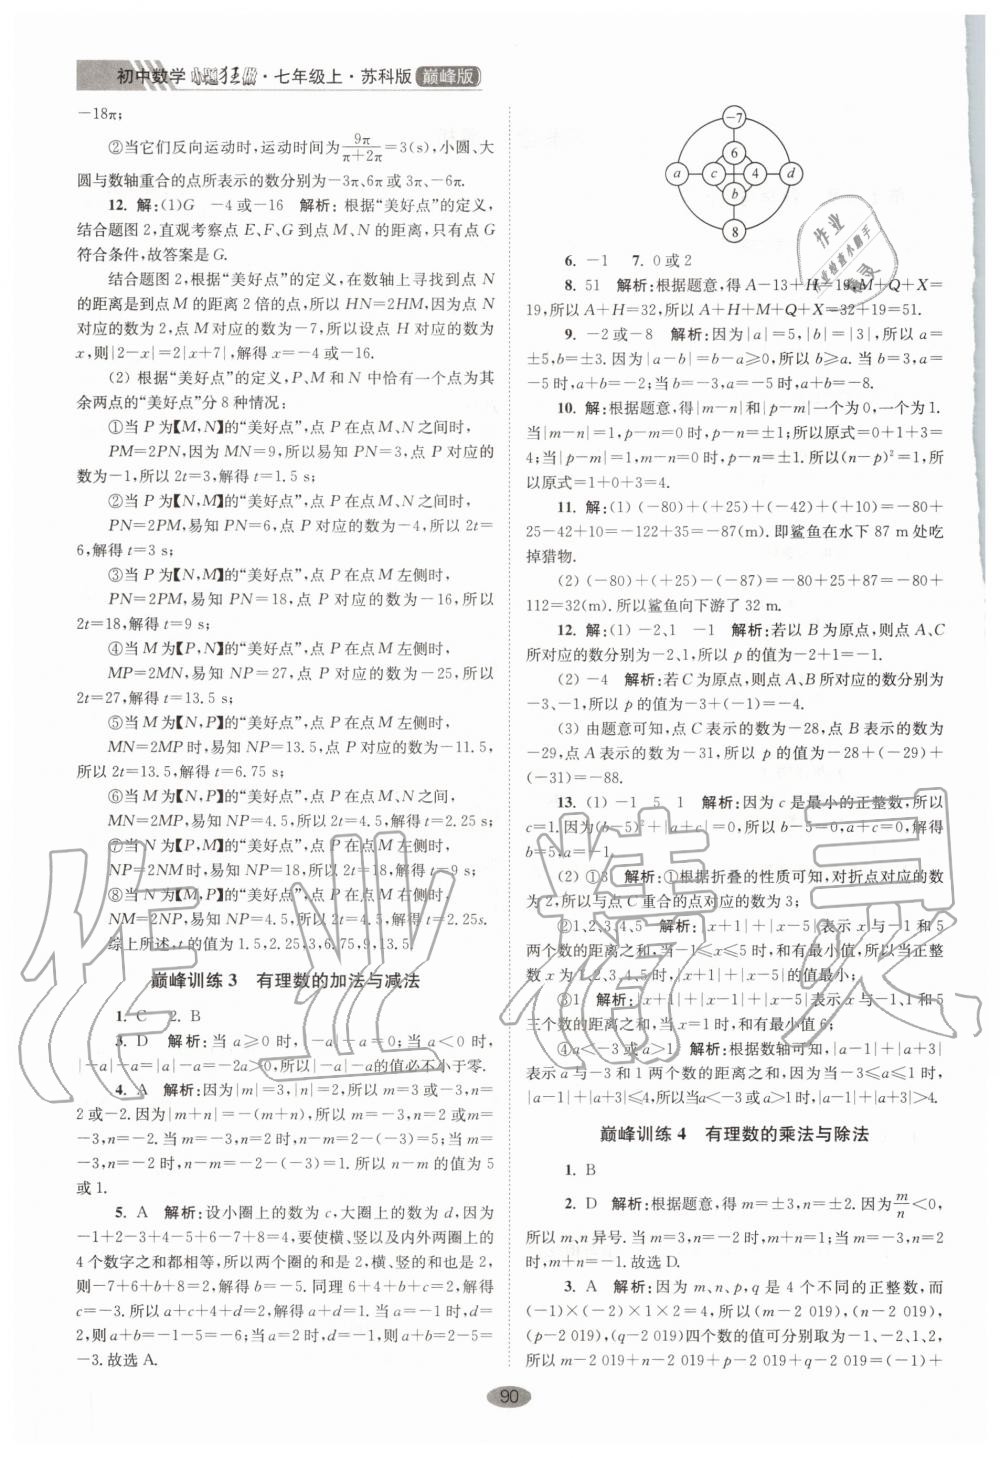 初中数学小题狂做·七年级上·苏科版 巅峰版
－18π;
②当它们反向运动时,运动时间为9π/(π+2π)=3(s),小圆、大
圆与数轴重合的点所表示的数分别为－3π、6π或3π、－6π.
12. 解:(1)G －4或－16 解析: 根据“美好点”的定义,
结合题图2,直观考察点E、F、G到点M、N的距离,只有点G
符合条件,故答案是G.
结合题图2,根据“美好点”的定义,在数轴上寻找到点N
的距离是到点M的距离2倍的点,所以HN=2HM,因为点N
对应的数为2,点M对应的数为－7,所以设点H对应的数为
x,则|2－x|=2|x+7|,解得x=－4或－16.
(2) 根据“美好点”的定义,P、M和N中恰有一个点为其
余两点的“美好点”分8种情况:
①当P为【M,N】的“美好点”,点P在点M、N之间时,
PM=2PN,因为MN=9,所以易知PN=3,点P对应的
数为－1,所以2t=3,解得t=1.5 s;
②当P为【N,M】的“美好点”,点P在点M、N之间时,
PN=2PM,易知PN=6,点P对应的数为－4,所以2t=
6,解得t=3 s;
③当P为【N,M】的“美好点”,点P在点M左侧时,
PN=2PM,易知PN=18,点P对应的数为－16,所以
2t=18,解得t=9 s;
④当M为【P,N】的“美好点”,点P在点M左侧时,
MP=2MN,易知NP=27,点P对应的数为－25,所以
2t=27,解得t=13.5 s;
⑤当M为【N,P】的“美好点”,点P在点M左侧时,
MN=2MP时,易知NP=13.5,点P对应的数为－11.5,
所以2t=13.5,解得t=6.75 s;
⑥当M为【N,P】的“美好点”,点P在点M、N之间时,
MN=2MP,易知NP=4.5,所以2t=4.5,解得t=2.25 s;
⑦当N为【P,M】的“美好点”,点P在点M左侧时,
NP=2NM时,易知NP=18,所以2t=18,解得t=9 s;
⑧当N为【M,P】的“美好点”,点P在点M右侧时,
NM=2NP,易知NP=4.5,所以2t=4.5,解得t=2.25s.
综上所述,t的值为1.5,2.25,3,6.75,9,13.5.
巅峰训练3 有理数的加法与减法
1. C 2. B
3. D 解析:当a≥0时,|－a|－a=0;当a<0时,
|－a|－a=|a|－a=－2a>0,所以|－a|－a的值必不小于零.
4. A 解析:因为|m|=3,|n|=2,所以m=3或－3,n=
2或－2.因为|m+n|=－(m+n),所以m=－3,n=2或m=
－3,n=－2.当m=－3,n=2时,n－m=2－(－3)=5;当m=
－3,n=－2时,n－m=－2－(－3)=1.所以n－m的值为5
或1.
5. A 解析:设小圈上的数为c,大圈上的数为d,因为
－1+2－3+4－5+6－7+8=4,要使横、竖以及内外两圈上的
4个数字之和都相等,所以两个圈的和是2,横、竖的和也是
2,则－7+6+b+8=2,解得b=－5.同理6+4+b+c=2,解得
c=－3.所以a+c+4+d=2,解得a+d=1.当a=－1时,d=
2,则a+b=－1－5=－6;当a=2时,d=－1,则a+b=2－5=
－3.故选A.
－7
6
a c 4 d
b
8
6. －1 7. 0或2
8. 51 解析:根据题意,得A－13+H=19,M+Q+X=
19,所以A+H=32,所以A+H+M+Q+X=32+19=51.
9. －2或－8 解析:因为|a|=5,|b|=|3|,所以a=
±5,b=±3.因为|a－b|=b－a≥0,所以b≥a.当b=3,a=
－5时,a+b=－2;当b=－3,a=－5时,a+b=－8.
10. 解:根据题意,得|m－n|和|p－m|一个为0,一个为1.
当|m－n|=1,p－m=0时,p－n=±1;所以原式=0+1+3=
4;当|p－m|=1,m－n=0时,p－n=±1.所以(n－p)²=1,所
以原式=1+0+3=4.
11. 解:(1) (－80)+(+25)+(－42)+(+10)=－80+
25－42+10=－122+35=－87(m). 即鲨鱼在水下87 m处吃
掉猎物.
(2) (－80)+(+25)－(－87)=－80+25+87=－80+
112=32(m). 所以鲨鱼向下游了32 m.
12. 解:(1) －2、1 －1 解析:若以B为原点,则点A、C
所对应的数分别为－2、1,所以p的值为－2+1=－1.
(2) －4 解析:若C为原点,则点A、B所对应的数分别为
－3、－1,所以p的值为－3+(－1)=－4.
(3) 由题意可知,点C表示的数为－28,点B表示的数为
－29,点A表示的数为－31,所以p的值为－28+(－29)+
(－31)=－88.
13. (1) －1 5 1 解析:因为c是最小的正整数,所以
c=1.因为(b－5)²+|a+c|=0,所以b－5=0,a+c=0,解得
b=5,a=－1.
(2) ①3 解析:①根据折叠的性质可知,对折点对应的数
为2,所以与点C重合的点对应的数为3;
②1、2、3、4、5 解析:|x+1|+|x－5|表示x与－1和5
两个数的距离之和,当－1≤x≤5时,和有最小值,所以当正整
数x为1、2、3、4、5时,|x+1|+|x－5|有最小值;
③1 解析:|x+1|+|x－1|+|x－5|表示x与－1、1和5
三个数的距离之和,当x=1时,和有最小值6;
④a<－3或a>1 解析:根据数轴可知,|a－1|+|a+3|
表示a与－3和1两个数的距离之和,因为当－3≤a≤1时,
|a－1|+|a+3|≤4,所以当a<－3或a>1时,|a－1|+|a+3|>4.
巅峰训练4 有理数的乘法与除法
1. B
2. D 解析:根据题意,得m=±3,n=±2.因为m/n<0,
所以m、n异号.当m=3,n=－2时,m+n=1;当m=－3,n=2
时,m+n=－1.故选D.
3. A 解析:因为m、n、p、q是4个不同的正整数,而
(－1)×(－2)×1×2=4,所以(m－2 019),(n－2 019),
(p－2 019),(q－2 019)四个数的值可分别取为－1、－2、1、2,
所以m－2 019+n－2 019+p－2 019+q－2 019=(－1)+
90
作业精灵